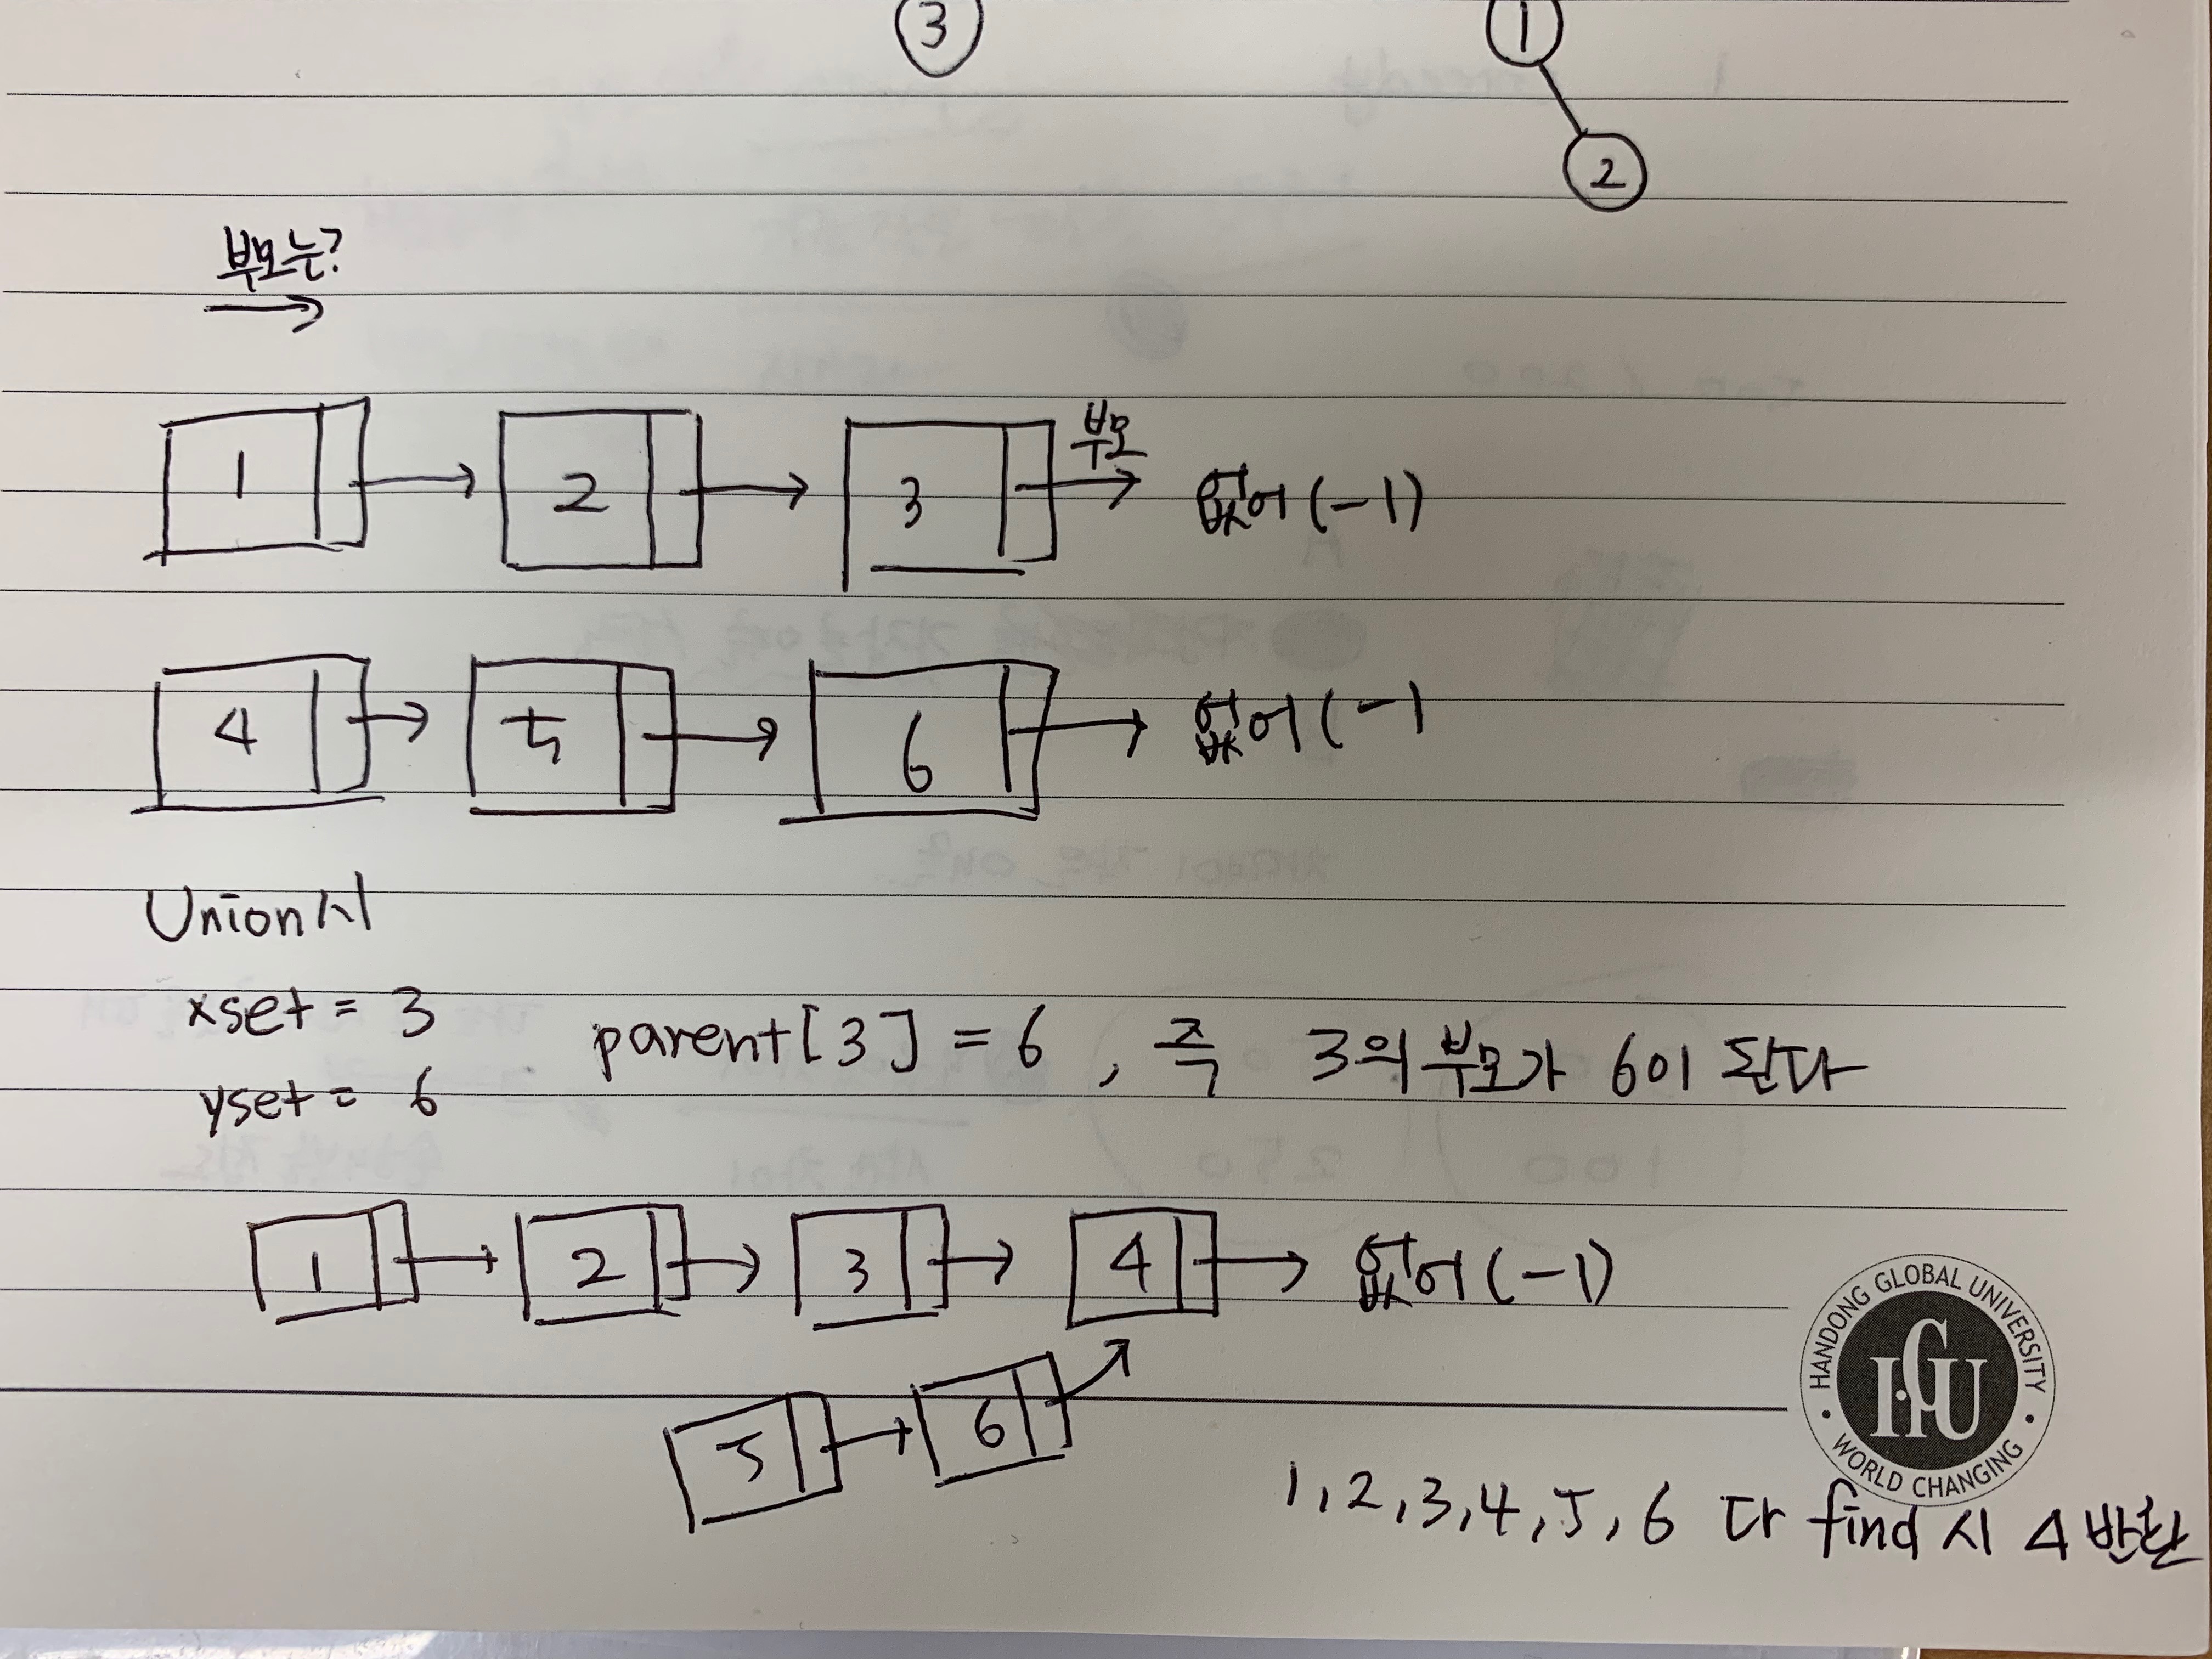 3 1
2
부모는?
1 2 3 부모 없어(-1)
4 5 6 없어(-1
Union시
xset = 3
parent[3] = 6, 즉 3의 부모가 6이 된다
yset = 6
1 2 3 4 없어(-1)
5 6
HANDONG GLOBAL UNIVERSITY
HGU
WORLD CHANGING
1,2,3,4,5,6 다 find시 4 반환